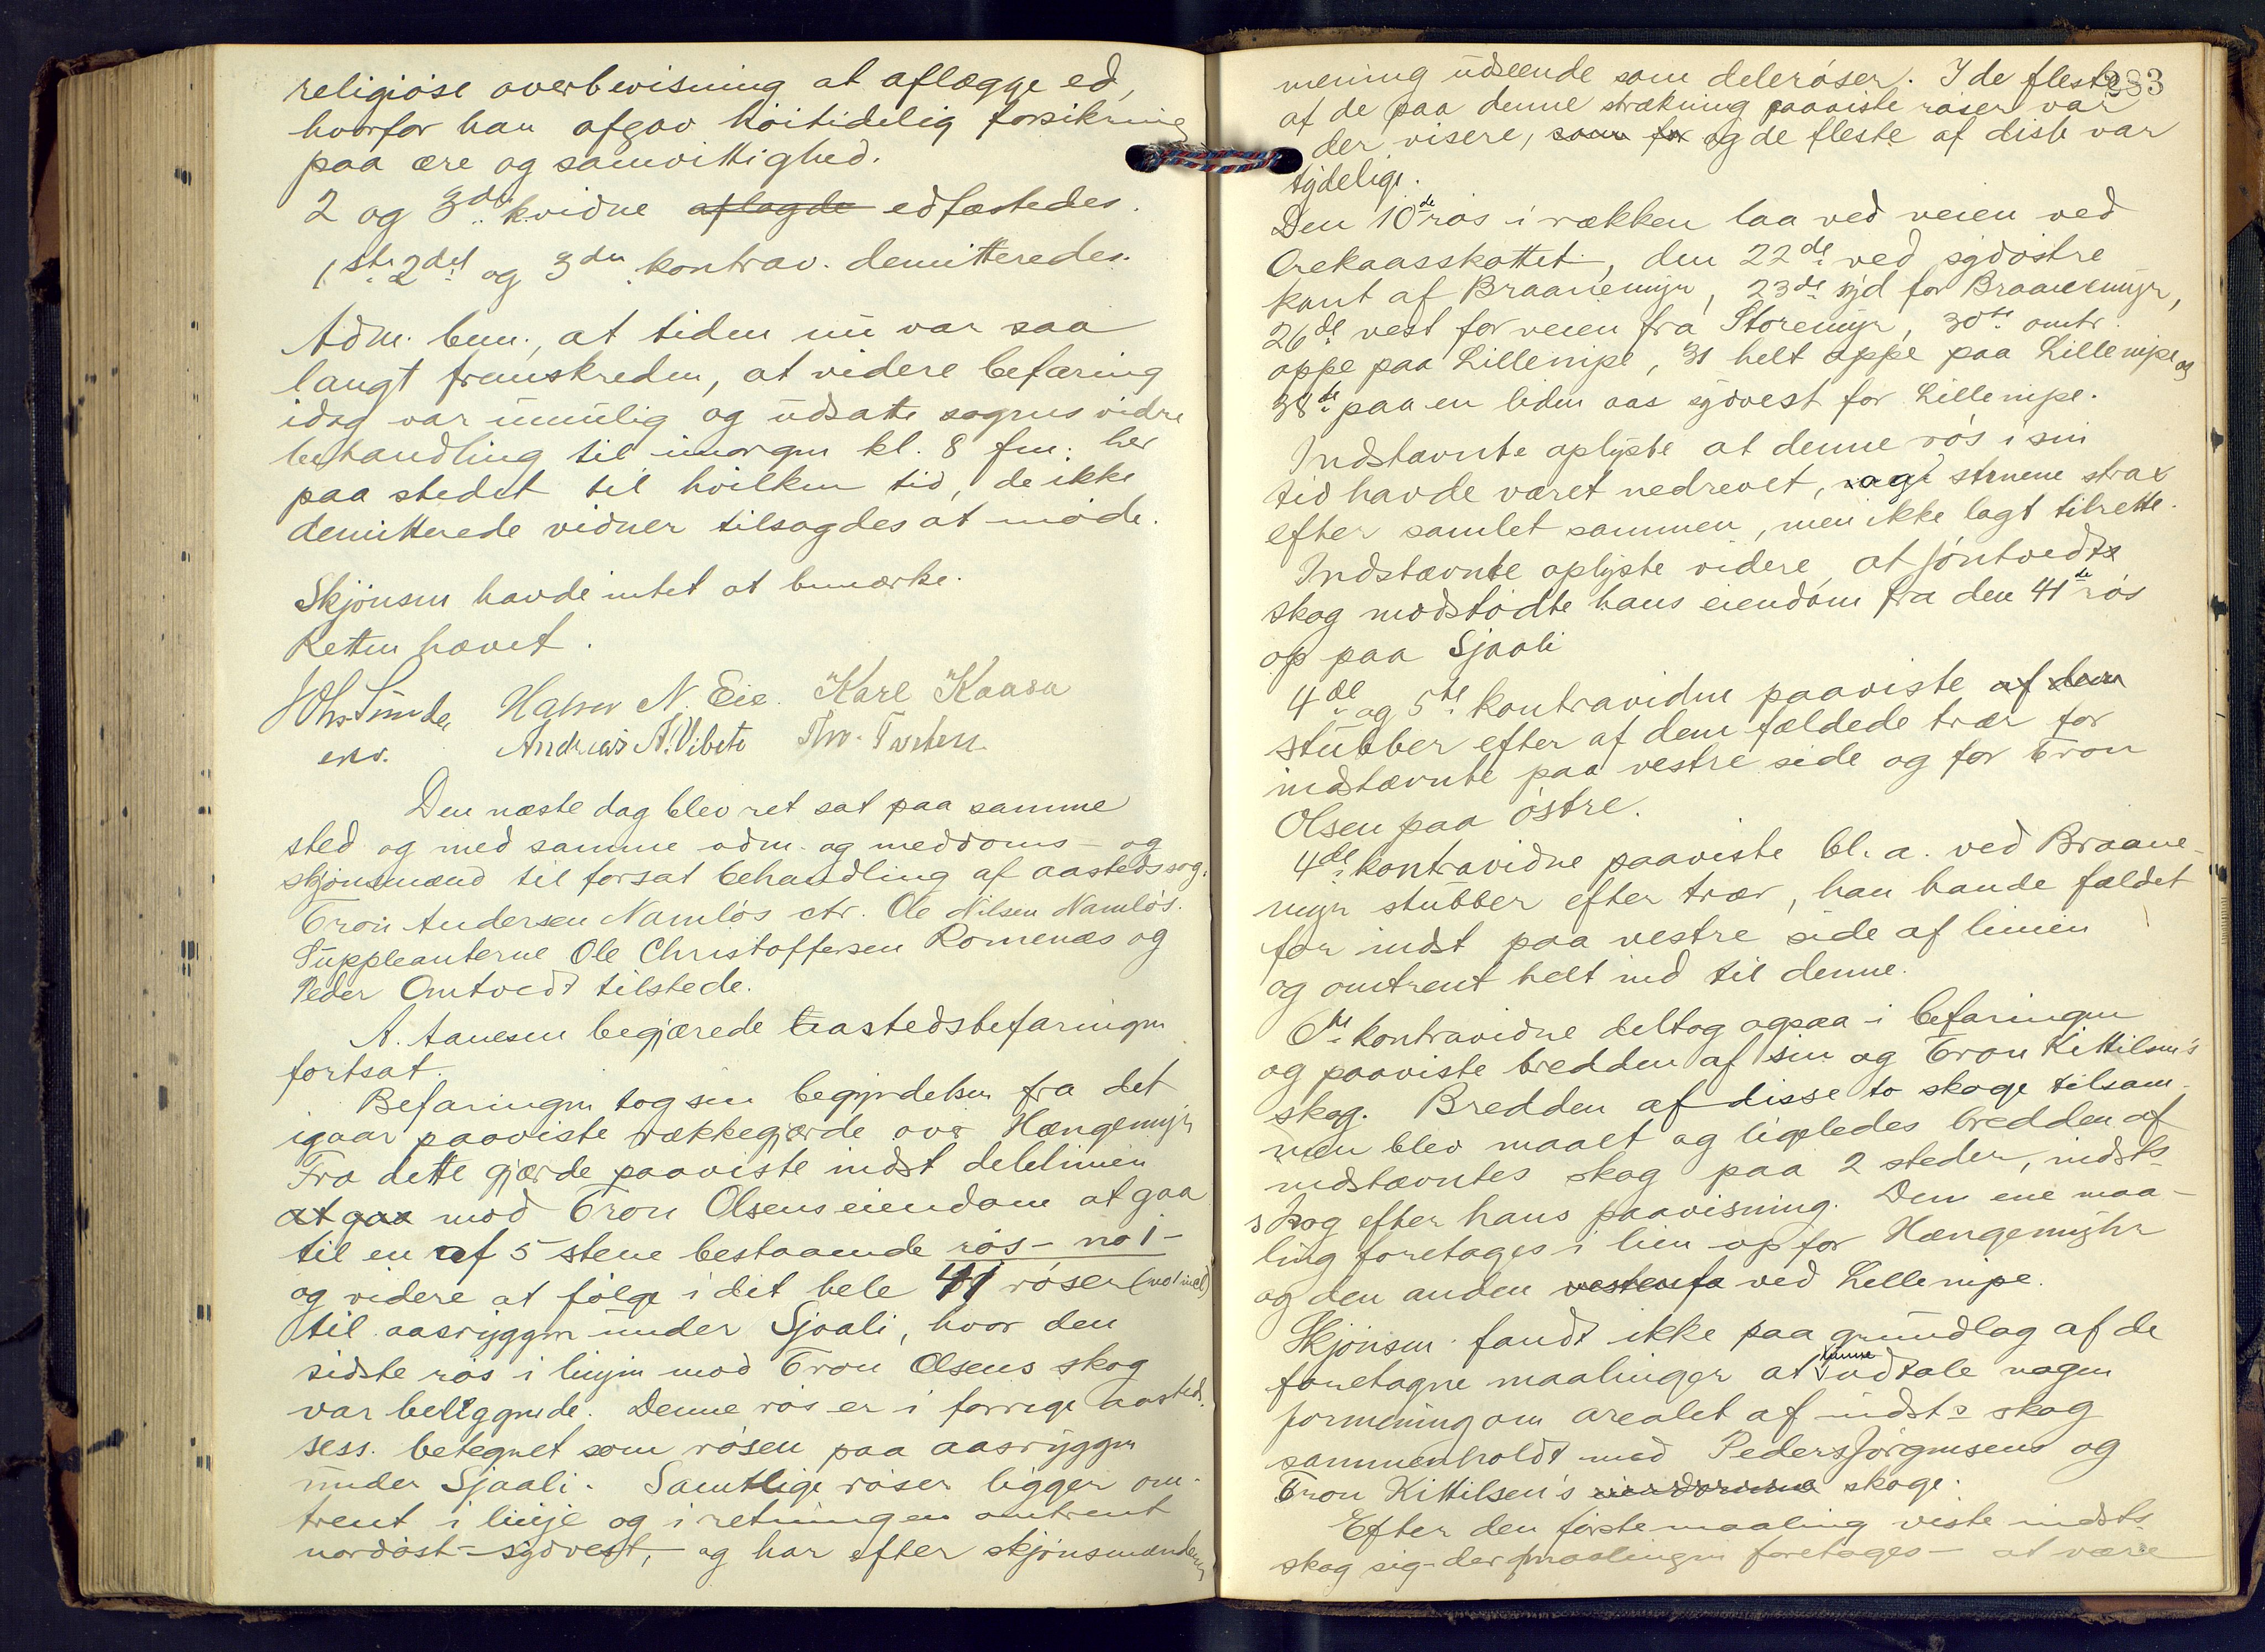 religiøse overbevisning at aflægge ed,
hvorfor han afgav høitidelig forsikring
paa ære og samvittighed.
2 og 3die k.vidne aflagde edfæstedes.
1ste 2det og 3die kontrav. demitteredes.
Adm. bem., at tiden nu var saa
langt fremskreden, at videre befaring
idag var umulig og udsatte sagens vidre
behandling til imorgen kl. 8 fm. her
paa stedet til hvilken tid, de ikke
demitterede vidner tilsagdes at møde.
Skjønsm havde intet at bemærke.
Retten hævet.
Halvor N. Eie. Karl Kaasa
Andreas N. Vibeto
Den næste dag blev ret sat paa samme
sted og med samme adm. og meddoms- og
skjønsmænd til forsat behandling af aastedssag:
Tron Andersen Namløs ctr. Ole Nilsen Namløs.
Suppleanterne Ole Christoffersen Romenæs og
Peder Omtvedt tilstede.
A. Aanesen begjærede aastedsbefaringen
fortsat.
Befaringen tog sin begyndelsen fra det
igaar paaviste rækkegjærde over Hængemyr
Fra dette gjærde paaviste indst delelinien
at gaa mod Tron Olsens eiendom at gaa
til en af 5 stene bestaaende røs - no 1 -
og videre at følge i det hele 41 røser (no 1 incl)
til aasryggen under Sjaali, hvor den
sidste røs i linjen mod Tron Olsens skog
var beliggende. Denne røs er i forrige aasteds.
sess. betegnet som røsen paa aasryggen
under Sjaali. Samtlige røser ligger om-
trent i linje og i retningen omtrent
nordøst-sydvest, og har efter skjønsmændenes
283
mening udseende som delerøser. I de fleste
af de paa denne strækning paaviste røser var
der visere, som for og de fleste af disse var
tydelige.
Den 10de røs i rækken laa ved veien ved
Orekaasskottet, den 22de ved sydøstre
kant af Braanemyr, 23de syd for Braanemyr,
26de vest for veien fra Storemyr, 30te omtr.
oppe paa Lillenipe, 31 helt oppe paa Lillenipe og
38de paa en liden aas sydvest for Lillenipe.
Indstævnte oplyste at denne røs i sin
tid havde været nedrevet, og stenene strax
efter samlet sammen, men ikke lagt tilrette.
Indstævnte oplyste videre, at Jøntvedts
skog modstødte hans eiendom fra den 41de røs
op paa Sjaali
4de og 5te kontravidne paaviste af dem
stubber efter af dem fældede trær for
indstævnte paa vestre side og for Tron
Olsen paa østre.
4de kontravidne paaviste bl. a. ved Braane-
myr stubber efter trær, han havde fældet
for indst paa vestre side af linien
og omtrent helt ind til denne.
6te kontravidne deltog ogsaa i befaringen
og paaviste bredden af sin og Tron Kittilsen's
skog. Bredden af disse to skoge tilsam-
men blev maalt og ligeledes bredden af
indstævntes skog paa 2 steder, indsts
skog efter hans paavisning. Den ene maa-
ling foretages i lien op for Hængemyhr
og den anden vestenfo ved Lillenipe.
Skjønsm. fandt ikke paa grundlag af de
foretagne maalinger at kunne udtale nogen
formening om arealet af indsts skog
sammenholdt med Peder Jørgensens og
Tron Kittilsen's eiendomme skoge.
Efter den første maaling viste indsts
skog sig - der maalingen foretages - at være